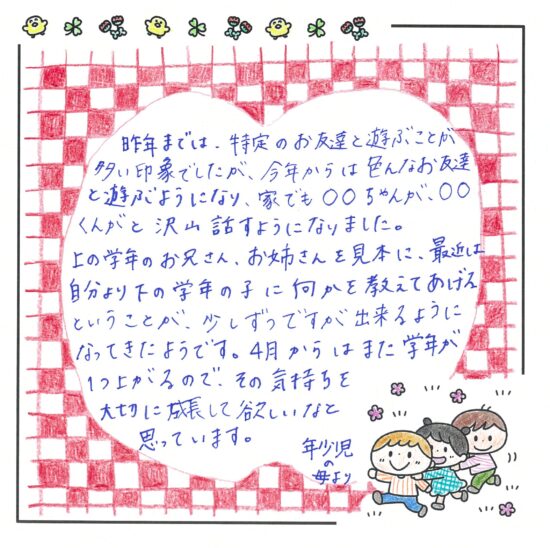 昨年までは、特定のお友達と遊ぶことが
多い印象でしたが、今年からは色んなお友達
と遊ぶようになり、家でも〇〇ちゃんが、〇〇
くんがと沢山話すようになりました。
上の学年のお兄さん、お姉さんを見本に、最近は
自分より下の学年の子に何かを教えてあげる
ということが、少しずつですが出来るように
なってきたようです。4月からはまた学年が
1つ上がるので、その気持ちを
大切に成長して欲しいなと
思っています。
年少児
の
母より